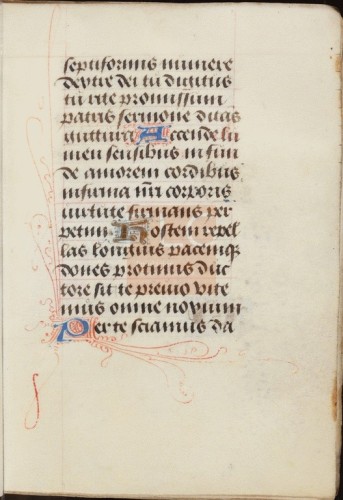 septiformis munere
dextre dei tu digitus
tu rite promissum
patris sermone ditas
guttura Accende lu
men sensibus infun
de amorem cordibus
infirma nri corporis
virtute firmans per
petim Hostem repel
las longius pacemq
dones protinus duc
tore sic te previo vite
mus omne noxium
Per te sciamus da